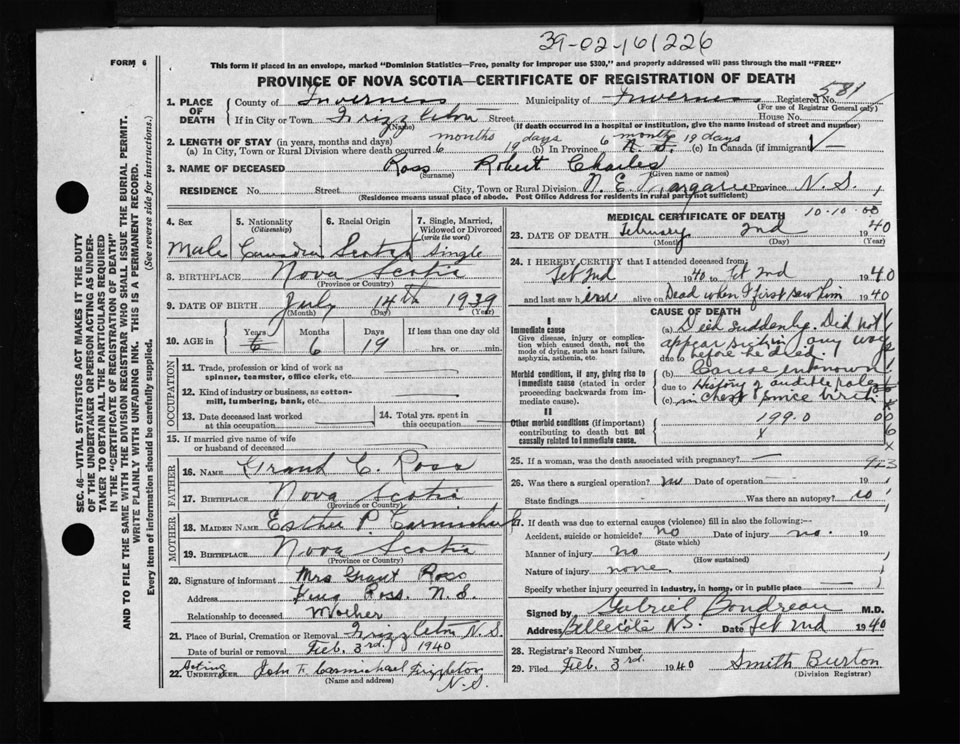 39-02-161226
FORM 6
This form if placed in an envelope, marked "Dominion Statistics—Free, penalty for improper use $300," and properly addressed will pass through the mail "FREE"
PROVINCE OF NOVA SCOTIA—CERTIFICATE OF REGISTRATION OF DEATH
1. PLACE OF DEATH County of Inverness Municipality of Inverness Registered No. 581
(For use of Registrar General only)
If in City or Town Frizzleton Street House No.
(Name) (If death occurred in a hospital or institution, give the name instead of street and number)
2. LENGTH OF STAY (in years, months and days) months days 6 months 19 days
(a) In City, Town or Rural Division where death occurred 6 19 (b) In Province N. S. (c) In Canada (if immigrant) —
3. NAME OF DECEASED Ross Robert Charles
(Surname) (Given name or names)
RESIDENCE No. Street City, Town or Rural Division N. E. Margaree Province N. S.
(Residence means usual place of abode. Post Office Address for residents in rural parts not sufficient)
4. Sex
Male
5. Nationality
(Citizenship)
Canadian
6. Racial Origin
Scotch
7. Single, Married, Widowed or Divorced
(write the word)
Single
8. BIRTHPLACE Nova Scotia
(Province or Country)
9. DATE OF BIRTH July 14th 1939
(Month) (Day) (Year)
10. AGE Years Months Days If less than one day old
6 6 19 hrs. or min.
OCCUPATION
11. Trade, profession or kind of work as spinner, teamster, office clerk, etc.
12. Kind of industry or business, as cotton-mill, lumbering, bank, etc.
13. Date deceased last worked at this occupation
14. Total yrs. spent in this occupation
15. If married give name of wife or husband of deceased
FATHER
16. NAME Grant C. Ross
17. BIRTHPLACE Nova Scotia
(Province or Country)
MOTHER
18. MAIDEN NAME Esther P. Carmichael
19. BIRTHPLACE Nova Scotia
(Province or Country)
20. Signature of informant Mrs Grant Ross
Address Ross. N. S.
Relationship to deceased Mother
21. Place of Burial, Cremation or Removal Frizzleton N. S.
Date of burial or removal Feb. 3rd. 1940
Acting
22. UNDERTAKER John F. Carmichael Frizzleton
(Name and address) N. S.
MEDICAL CERTIFICATE OF DEATH 10-10-00
23. DATE OF DEATH February 2nd 1940
(Month) (Day) (Year)
24. I HEREBY CERTIFY that I attended deceased from:
Feb 2nd 1940 to Feb 2nd 1940
and last saw him alive on Dead when I first saw him 1940
CAUSE OF DEATH
I
Immediate cause
Give disease, injury or complication which caused death, not the mode of dying, such as heart failure, asphyxia, asthenia, etc.
(a) Died suddenly. Did not
appear sick in any way
due to before he died.
Morbid conditions, if any, giving rise to immediate cause (stated in order proceeding backwards from immediate cause).
(b) Cause unknown
due to History of audible rales
(c) in chest since birth
II
Other morbid conditions (if important) contributing to death but not causally related to immediate cause.
199.0
x
25. If a woman, was the death associated with pregnancy? — 923
26. Was there a surgical operation? no Date of operation — 19
State findings Was there an autopsy? no
27. If death was due to external causes (violence) fill in also the following:—
Accident, suicide or homicide? no Date of injury no. 19
(State which)
Manner of injury no
(How sustained)
Nature of injury none.
Specify whether injury occurred in industry, in home, or in public place —
Signed by Gabriel Boudreau M.D.
Address Bellecote NS. Date Feb 2nd 1940
28. Registrar's Record Number
29. Filed Feb. 3rd. 1940 Smith Burton
(Division Registrar)
SEC. 46—VITAL STATISTICS ACT MAKES IT THE DUTY
OF THE UNDERTAKER OR PERSON ACTING AS UNDER-
TAKER TO OBTAIN ALL THE PARTICULARS REQUIRED
IN THE "CERTIFICATE OF REGISTRATION OF DEATH"
AND TO FILE THE SAME WITH THE DIVISION REGISTRAR WHO SHALL ISSUE THE BURIAL PERMIT.
WRITE PLAINLY WITH UNFADING INK. THIS IS A PERMANENT RECORD.
Every item of information should be carefully supplied. (See reverse side for instructions.)